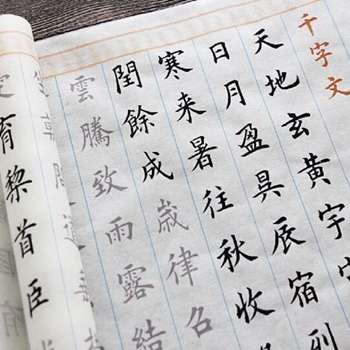 千字文
天地玄黃宇
日月盈昃辰宿
寒来暑往秋收
閏餘成歲律呂
雲騰致雨露結
育黎首臣